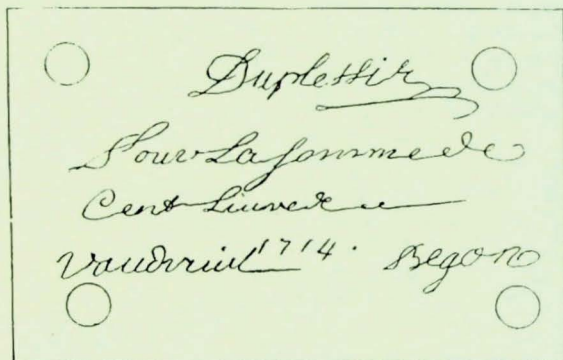 Duplessis
Pour La Somme de
Cent Liuvres
Vaudreuil 1714. Begon